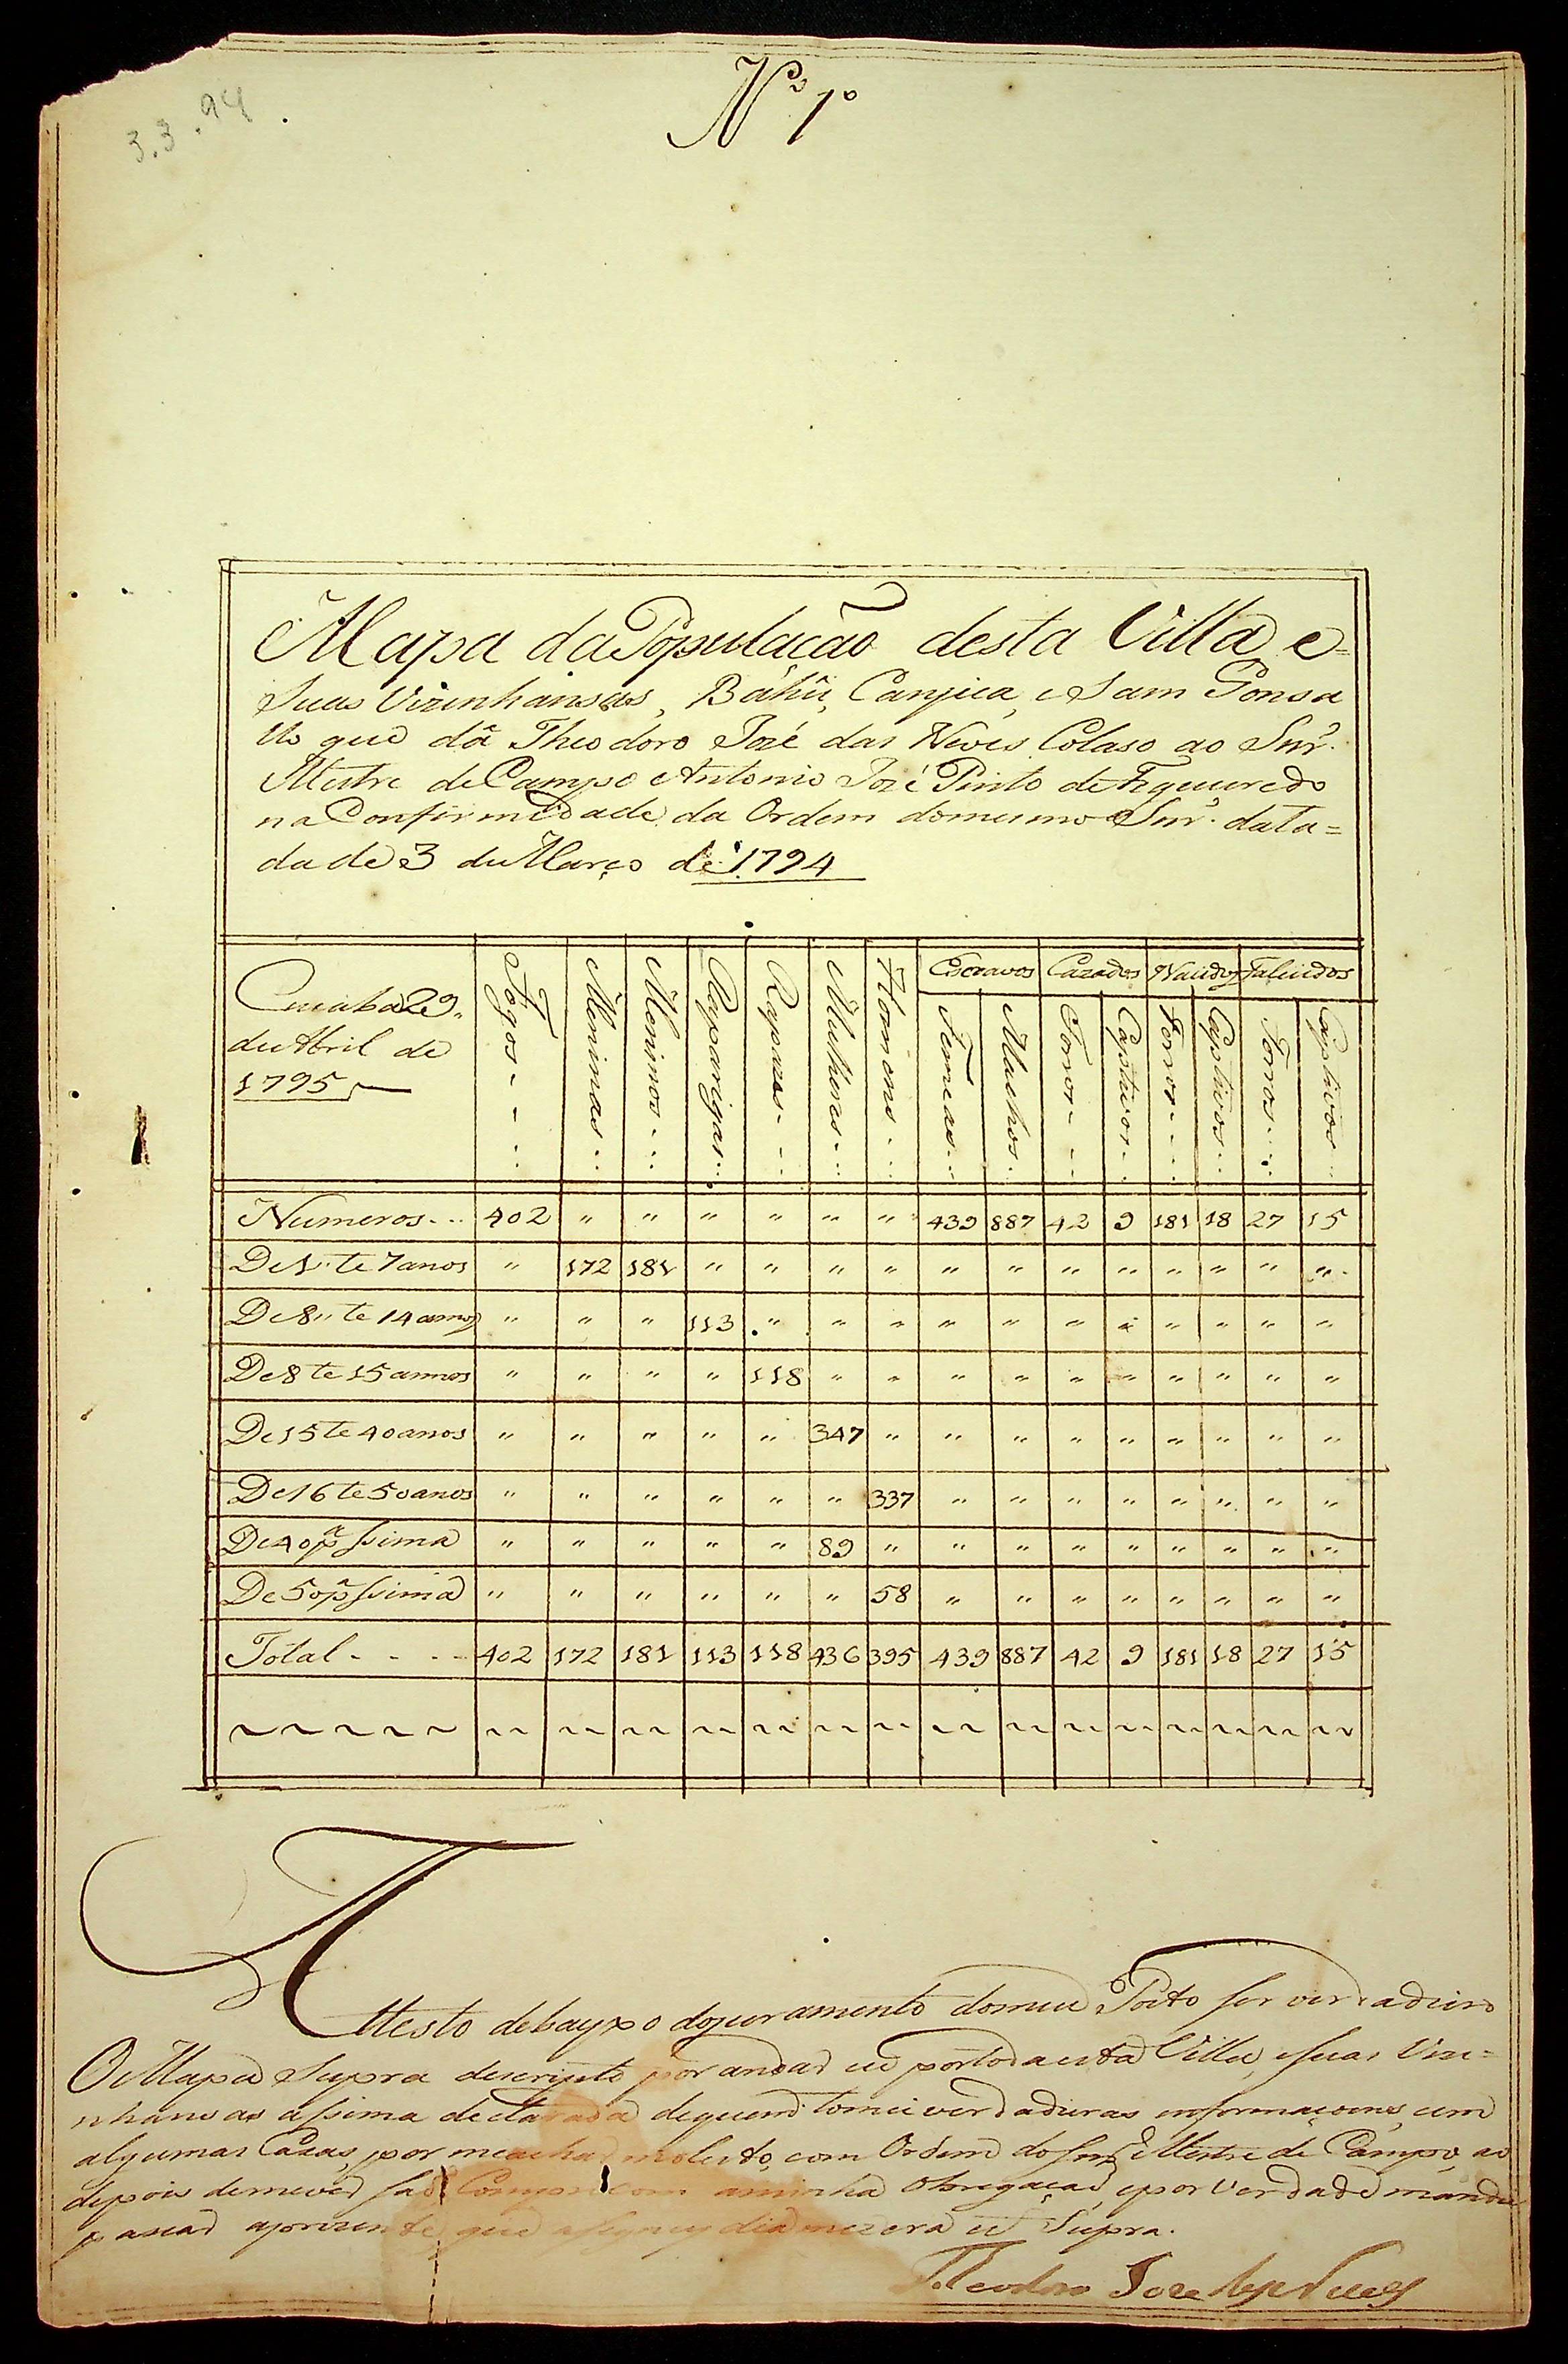 3.3.94.
Nº 1º
Mapa da População desta Villa e
Suas Vizinhansas, Bahû, Canjica, e Sam Gonsa
llo que dâ Theodoro Jozé das Neves Colaso ao Snr.
Mestre de Campo Antonio Jozé Pinto de Figueiredo
na Confirmidade da Ordem do mesmo Snr. data=
da de 3 de Março de 1794
Cuiaba 29
de Abril de
1795
Fogos
Meninas
Meninos
Raparigas
Rapazes
Mulheres
Homens
Escravos Cazados Nacidos Falecidos
Femeas
Machos
Forros
Captivos
Forros
Captivos
Forros
Captivos
Numeros 402 " " " " " " 439 887 42 9 181 18 27 15
De 1 te 7 anos " 172 181 " " " " " " " " " " " "
De 8 te 14 annos " " " 113 " " " " " " " " " " "
De 8 te 15 annos " " " " 118 " " " " " " " " " "
De 15 te 40 anos " " " " " 347 " " " " " " " " "
De 16 te 50 anos " " " " " " 337 " " " " " " " "
De 40 pª ssima " " " " " 89 " " " " " " " " "
De 50 pª ssima " " " " " " 58 " " " " " " " "
Total 402 172 181 113 118 436 395 439 887 42 9 181 18 27 15
Attesto debayxo do juramento do meu Posto ser verdadeiro
O Mapa Supra descripto por andar eu por toda esta Villa, e suas Vizi=
nhansas assima declarada de quem tomei verdadeiras informaçoens, em
algumas Cazas, por me achar molesto, com Ordem do Snr. Mestre de Campo, ao
depois a minha Obregaçaõ, e por Verdade mandei
pasar a prezente que assigney dia mez era ut Supra.
Theodoro Joze das Neves